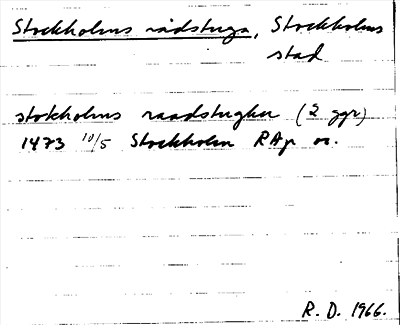 Stockholms rådstuga, Stockholms
stad
stokholms raadstughu (2 ggr)
1473 10/5 Stockholm RAp or.
R. D. 1966.